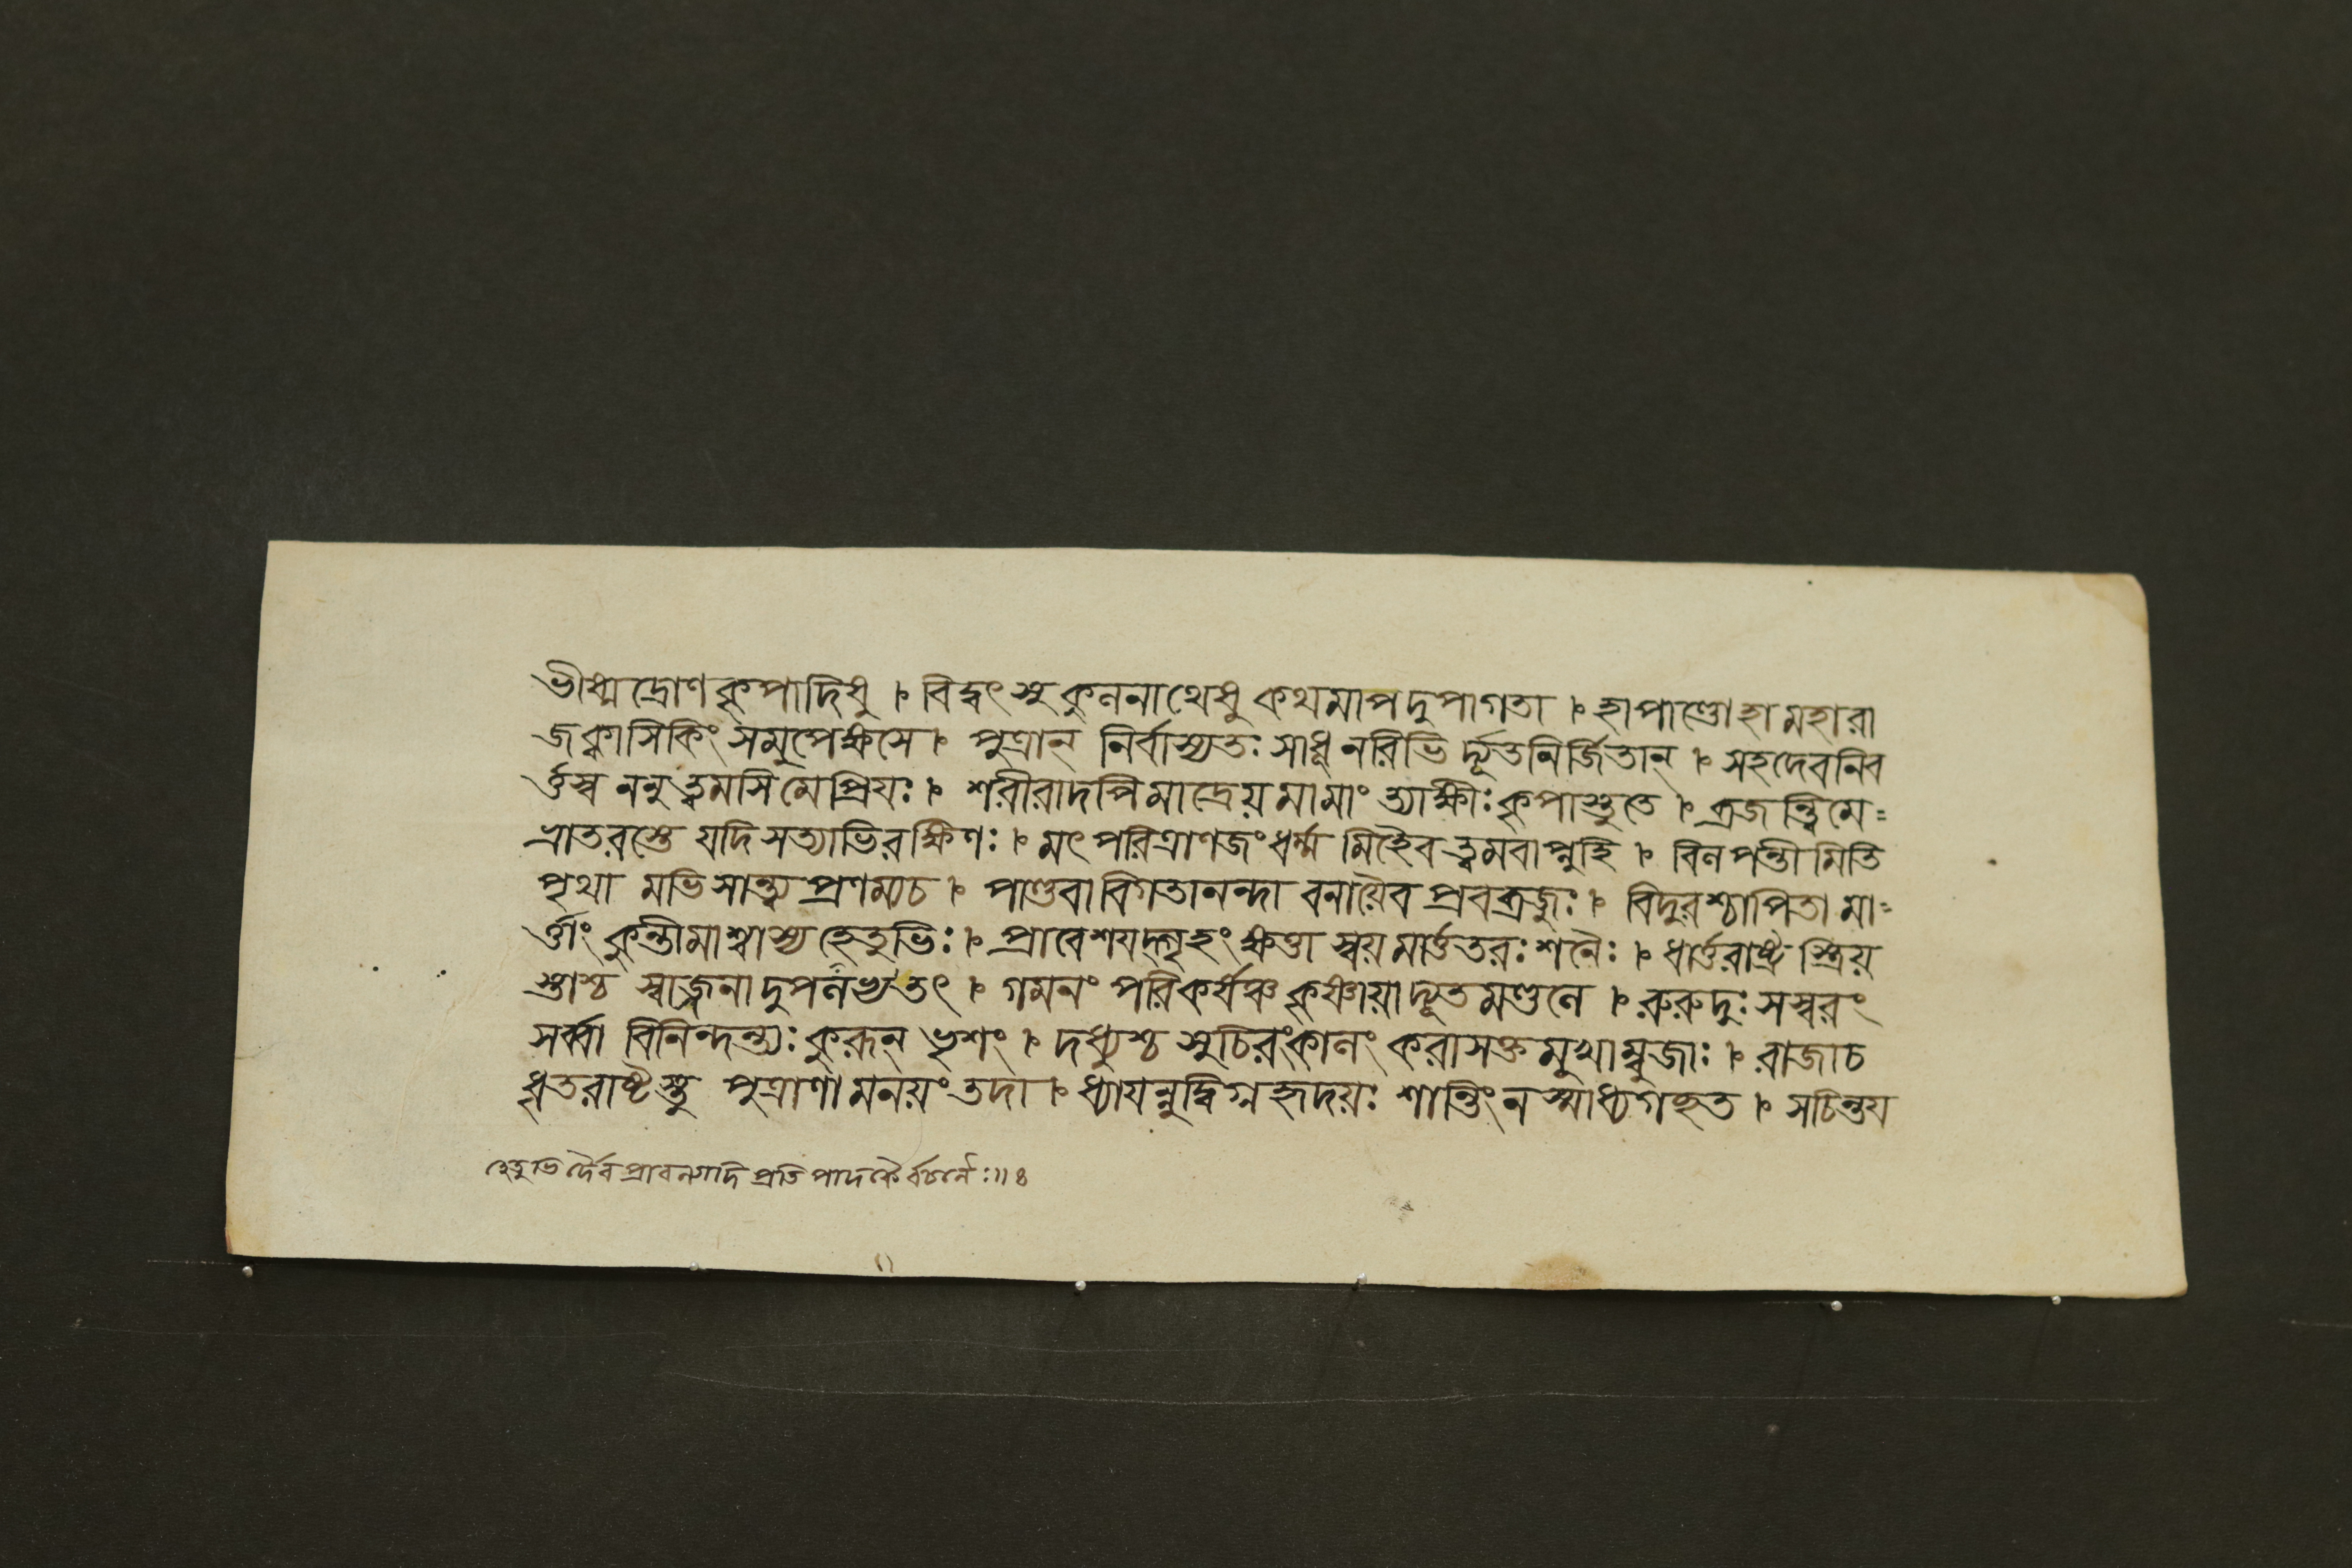 ভীষ্মদ্রোণকৃপাদিষু । বিদ্বৎসু কুলনাথেষু কথমাপদুপাগতা । হাপাণ্ডোহামহারা
জক্বাসিকিংসমুপেক্ষসে । পুত্রান্ নির্বাস্যতঃ সাধূনরিভি র্দ্যূতনির্জিতান্ । সহদেবনিব
র্ত্তস্ব ননু ত্বমসিমেপ্রিয়ঃ । শরীরাদপিমাদ্রেয়মামাং ত্যাক্ষীঃকৃপাস্তুতে । ব্রজন্ত্বিমে=
ভ্রাতরস্তে যদিসত্যাভিরক্ষিণঃ । মৎপরিত্রাণজংধর্ম্ম মিহৈব ত্বমবাপ্নুহি । বিলপন্তী মিতি
পৃথা মভিসান্ত্ব্য প্রণম্যচ । পাণ্ডবাবিগতানন্দা বনায়ৈব প্রবব্রজুঃ । বিদুরশ্চাপিতা মা=
র্ত্তাং কুন্তীমাশ্বাস্য হেতুভিঃ । প্রাবেশয়দ্গৃহংক্ষত্তা স্বয়মার্ত্ততরঃশনৈঃ । ধার্ত্তরাষ্ট্র স্ত্রিয়
স্তাশ্চ স্বাজ্জনাদুপলভ্যতৎ । গমনং পরিকর্ষঞ্চ কৃষ্ণায়াদ্যূতমণ্ডলে । রুরুদুঃ সস্বরং
সর্ব্বা বিনিন্দন্ত্যঃ কুরূন্ ভৃশং । দধ্যুশ্চ সুচিরংকালং করাসক্তমুখাম্বুজাঃ । রাজাচ
ধৃতরাষ্ট্রস্তু পুত্রাণামনয়ং তদা । ধ্যায়ন্নুদ্বিগ্নহৃদয়ঃ শান্তিংন স্মাধ্যগচ্ছত । সচিন্তয়
হেতুভি র্দৈবপ্রাবল্যাদিপ্রতিপাদকৈর্বচনৈঃ॥৪